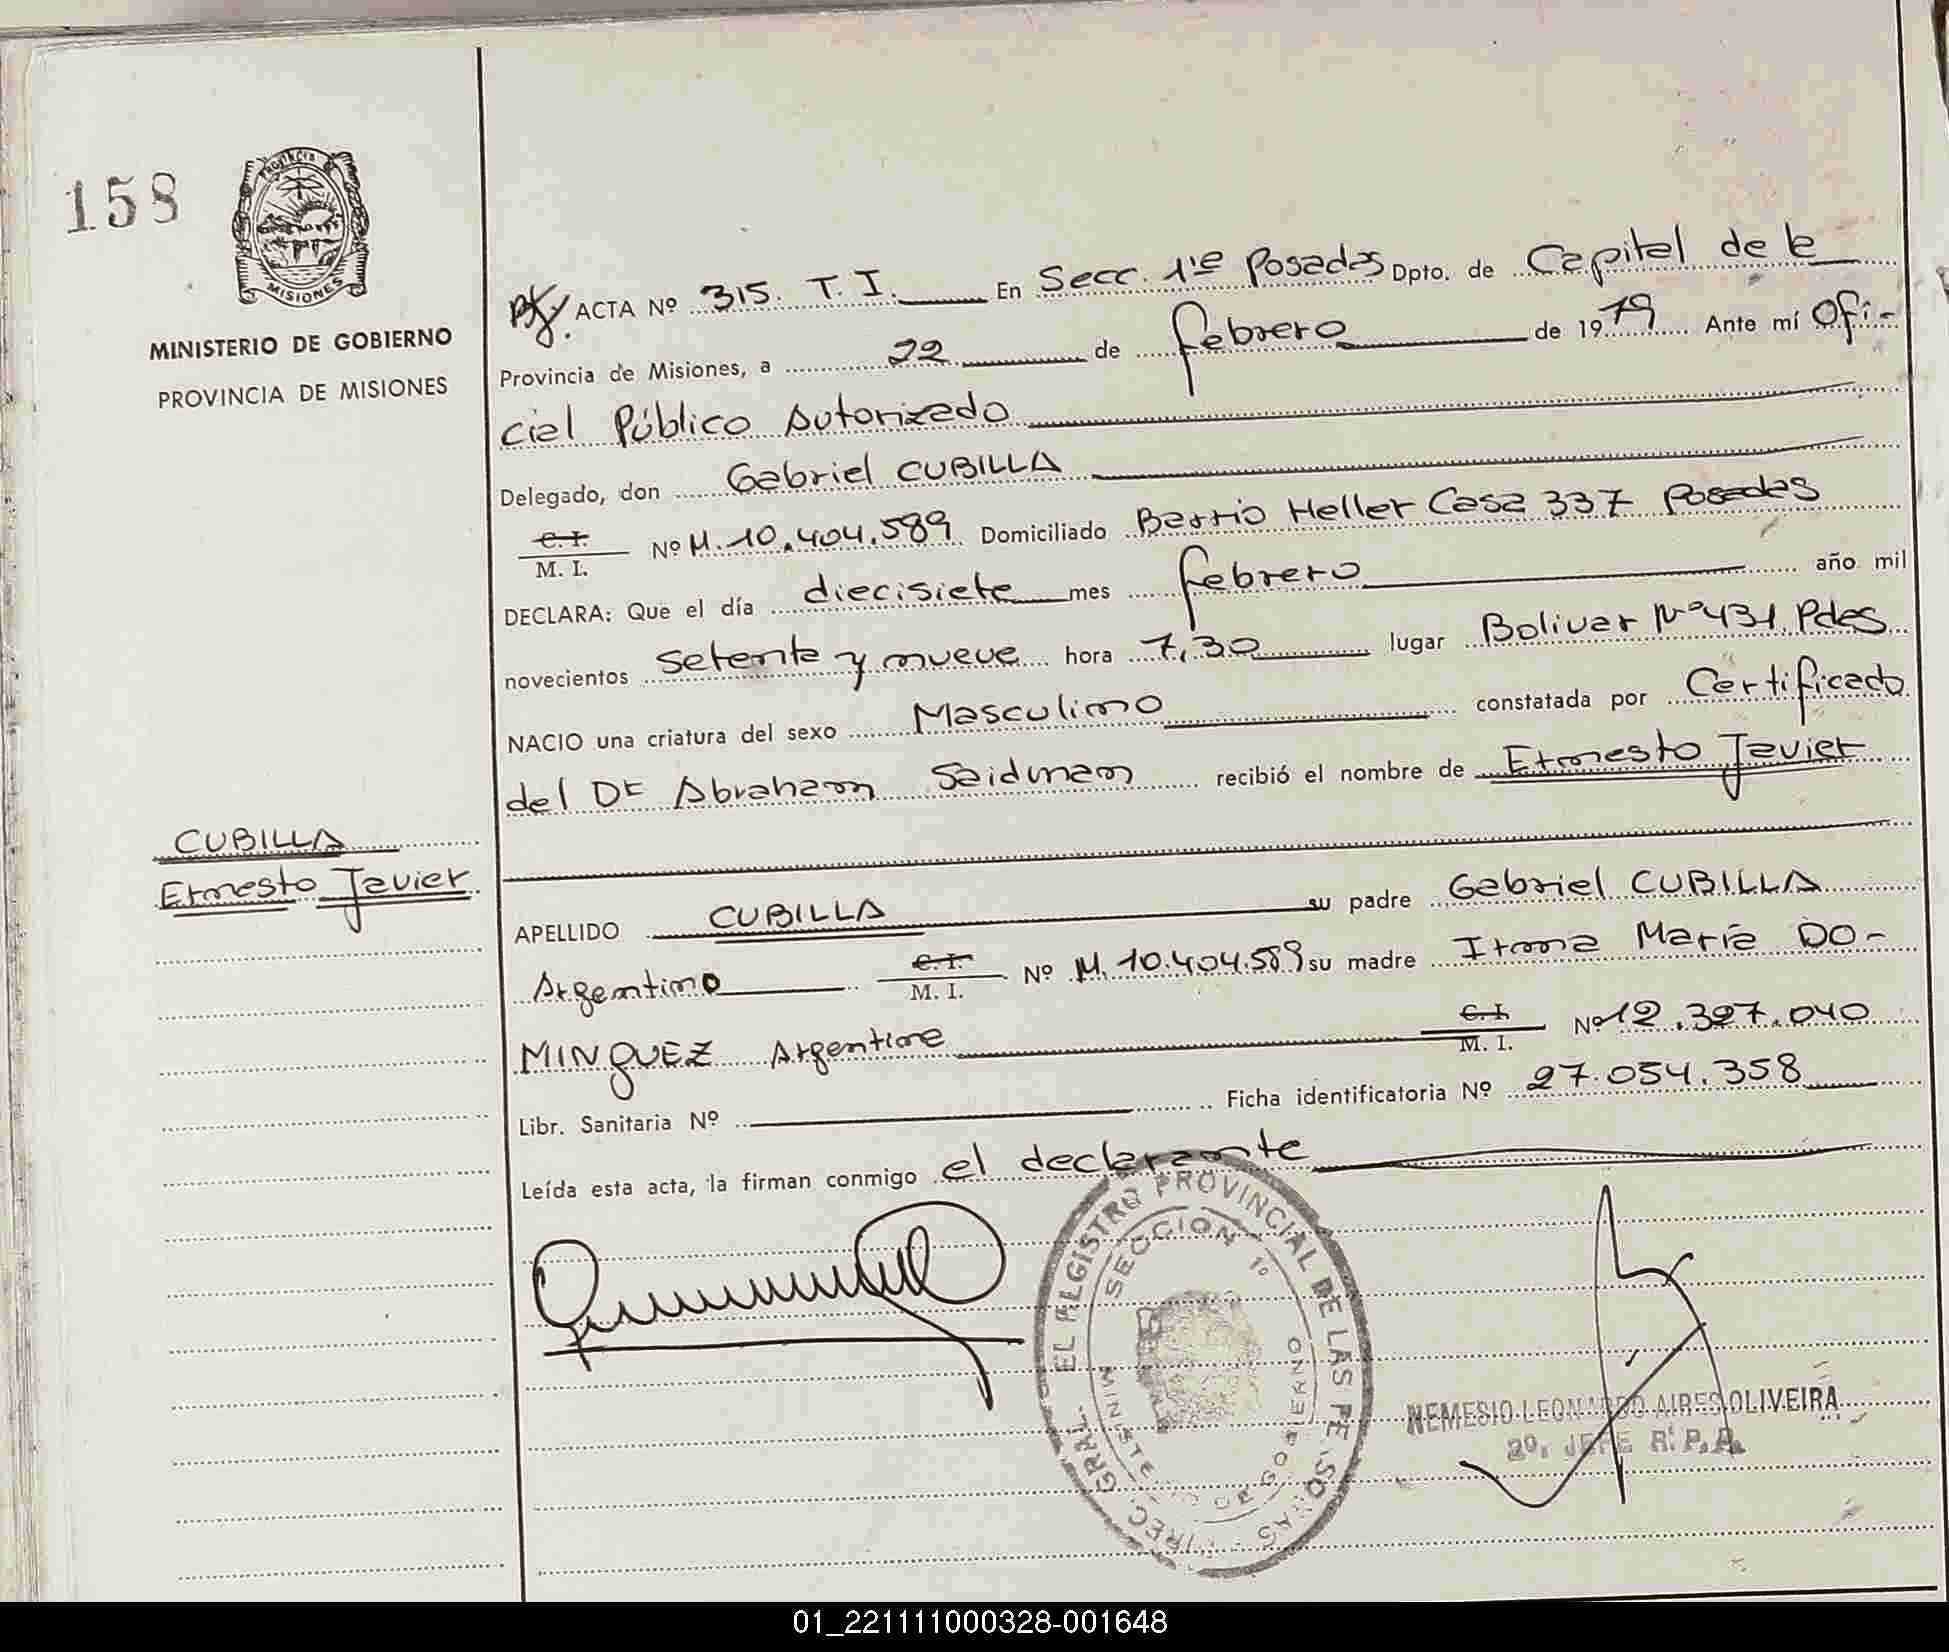 158
PROVINCIA
MISIONES
MINISTERIO DE GOBIERNO
PROVINCIA DE MISIONES
CUBILLA
Ernesto Javier
ACTA Nº 315. T. I. En Secc. 1ª Posadas Dpto. de Capital de la
Provincia de Misiones, a 22 de febrero de 1979 Ante mí Ofi-
cial Público Autorizado
Delegado, don Gabriel CUBILLA
C. I.
M. I. Nº M. 10.404.589 Domiciliado Barrio Heller Casa 337 Posadas
DECLARA: Que el día diecisiete mes febrero año mil
novecientos setenta y nueve hora 7,30 lugar Bolivar Nº 431 Pdas
NACIO una criatura del sexo Masculino constatada por Certificado
del Dr Abraham Saidman recibió el nombre de Ernesto Javier
APELLIDO CUBILLA su padre Gabriel CUBILLA
Argentino C. I. M. I. Nº M. 10.404.589 su madre Irma María DO-
MINGUEZ Argentina C. I. M. I. Nº 12.327.040
Libr. Sanitaria Nº Ficha identificatoria Nº 27.054.358
Leída esta acta, la firman conmigo el declarante
REGISTRO PROVINCIAL DE LAS PERSONAS
SECCION 1º
MINISTERIO DE GOBIERNO
NEMESIO LEONARDO AIRES OLIVEIRA
2º. JEFE R. P. P.
01_221111000328-001648